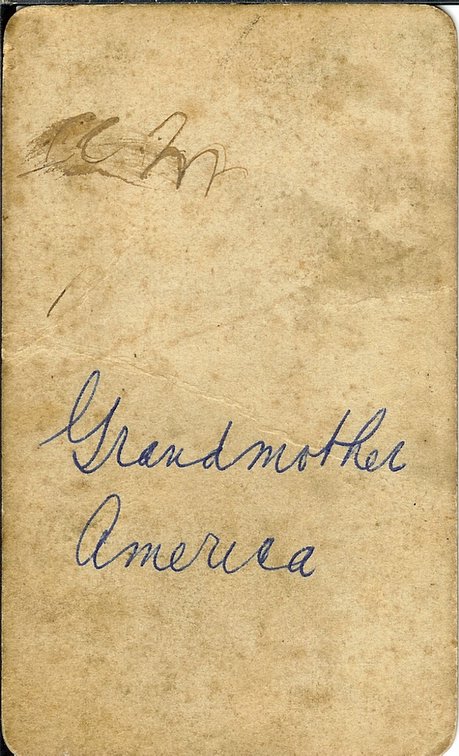 Grandmother
America